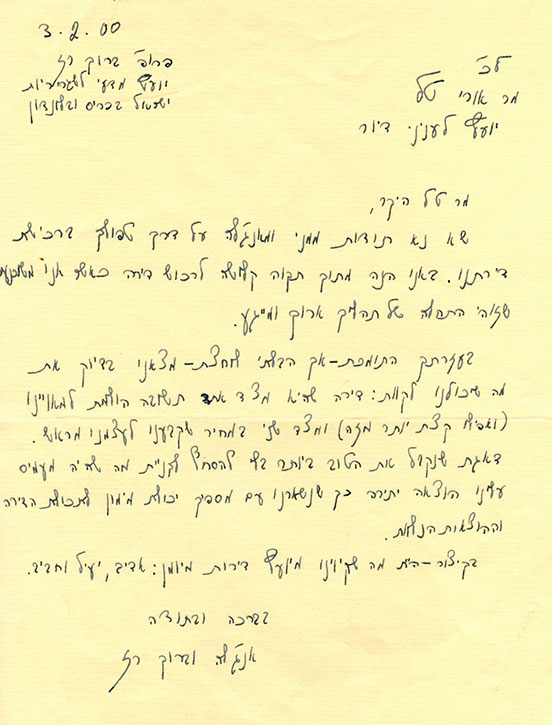 3.2.00
פרופ' ברוק רז
יועץ מדעי לשגרירויות
ישראל בפריס ובלונדון
לכ'
מר אורי טל
יועץ לענייני דיור
מר טל היקר,
שא נא תודות ממני ומאנג'לה על דרך טפולך ברכישת
דירתנו. באנו הנה מתוך תקוה קלושה לרכוש דירה כאשר אנו משוכנעים
שזוהי התחלה של תהליך ארוך ומייגע.
בעזרתך התומכת-אך הבלתי לוחצת-מצאנו בדיוק את
מה שיכולנו לקוות: דירה שהיא מצד אחד תשובה הולמת למאויינו
(ואפילו קצת יותר מזה) ומצד שני במחיר שקבענו לעצמנו מראש.
דאגת שנקבל את הטוב ביותר בלי להסחף לקניית מה שהיה מעמיס
עלינו הוצאה יתירה כך שנשארנו עם מספיק יכולת מימון לתכולת הדירה
וההוצאות הנלוות.
בקיצור-היית מה שקיוינו מיועץ דירות מיומן: אדיב, יעיל וחביב.
בברכה ובתודה
אנג'לה וברוק רז